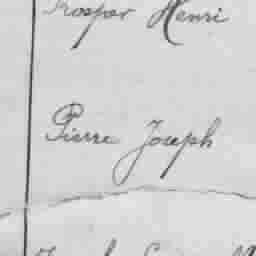 Prosper Henri
Pierre Joseph